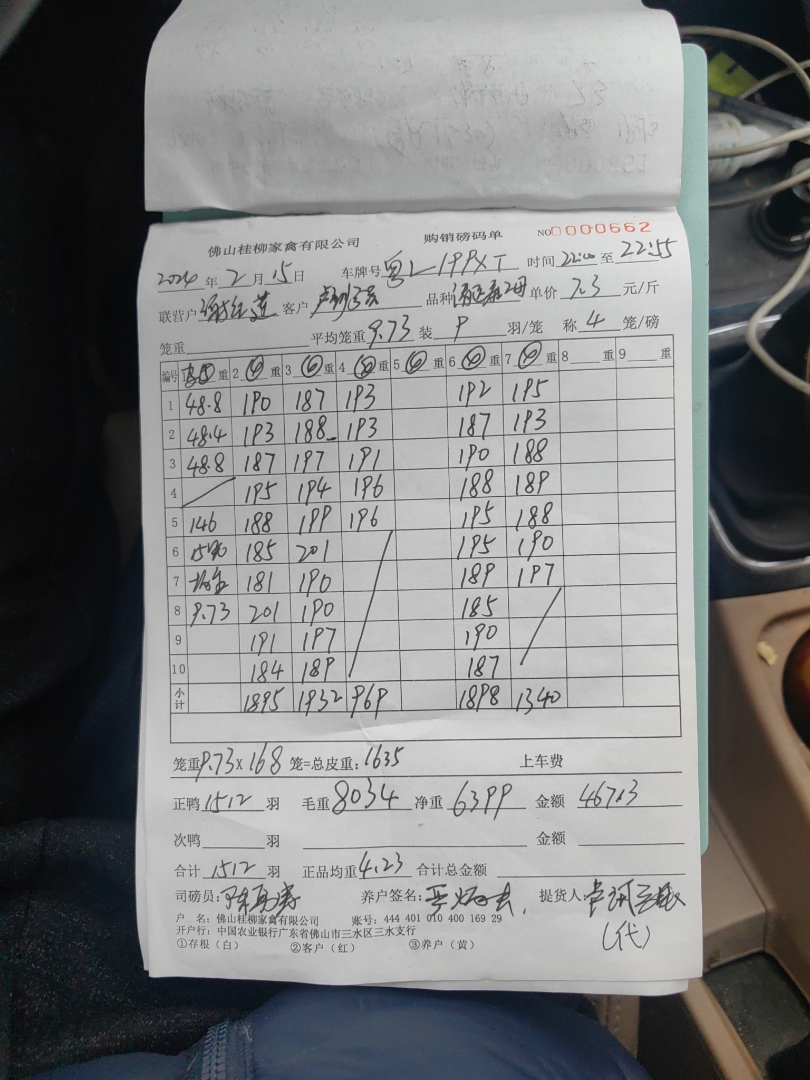 佛山桂柳家禽有限公司 购销磅码单 NO0000662
2024年2月15日 车牌号粤L199XT 时间22:00至22:55
联营户 客户 品种 单价7.3元/斤
笼重 平均笼重9.73装9羽/笼 称4笼/磅
编号 重 2 重 3 重 4 重 5 重 6 重 7 重 8 重 9 重
1 48.8 190 187 193 192 195
2 48.4 193 188 193 187 193
3 48.8 187 197 191 190 188
4 195 194 196 188 189
5 146 188 199 196 195 188
6 15 185 201 195 190
7 181 190 189 197
8 9.73 201 190 185
9 191 197 190
10 184 189 187
小计 1895 1932 969 1898 1340
笼重9.73X168笼=总皮重:1635 上车费
正鸭1512羽 毛重8034 净重6399 金额46713
次鸭 羽 金额
合计1512羽 正品均重4.23 合计总金额
司磅员: 养户签名: 提货人
(代)
户 名: 佛山桂柳家禽有限公司 账号: 444 401 010 400 169 29
开户行: 中国农业银行广东省佛山市三水区三水支行
①存根(白) ②客户(红) ③养户(黄)